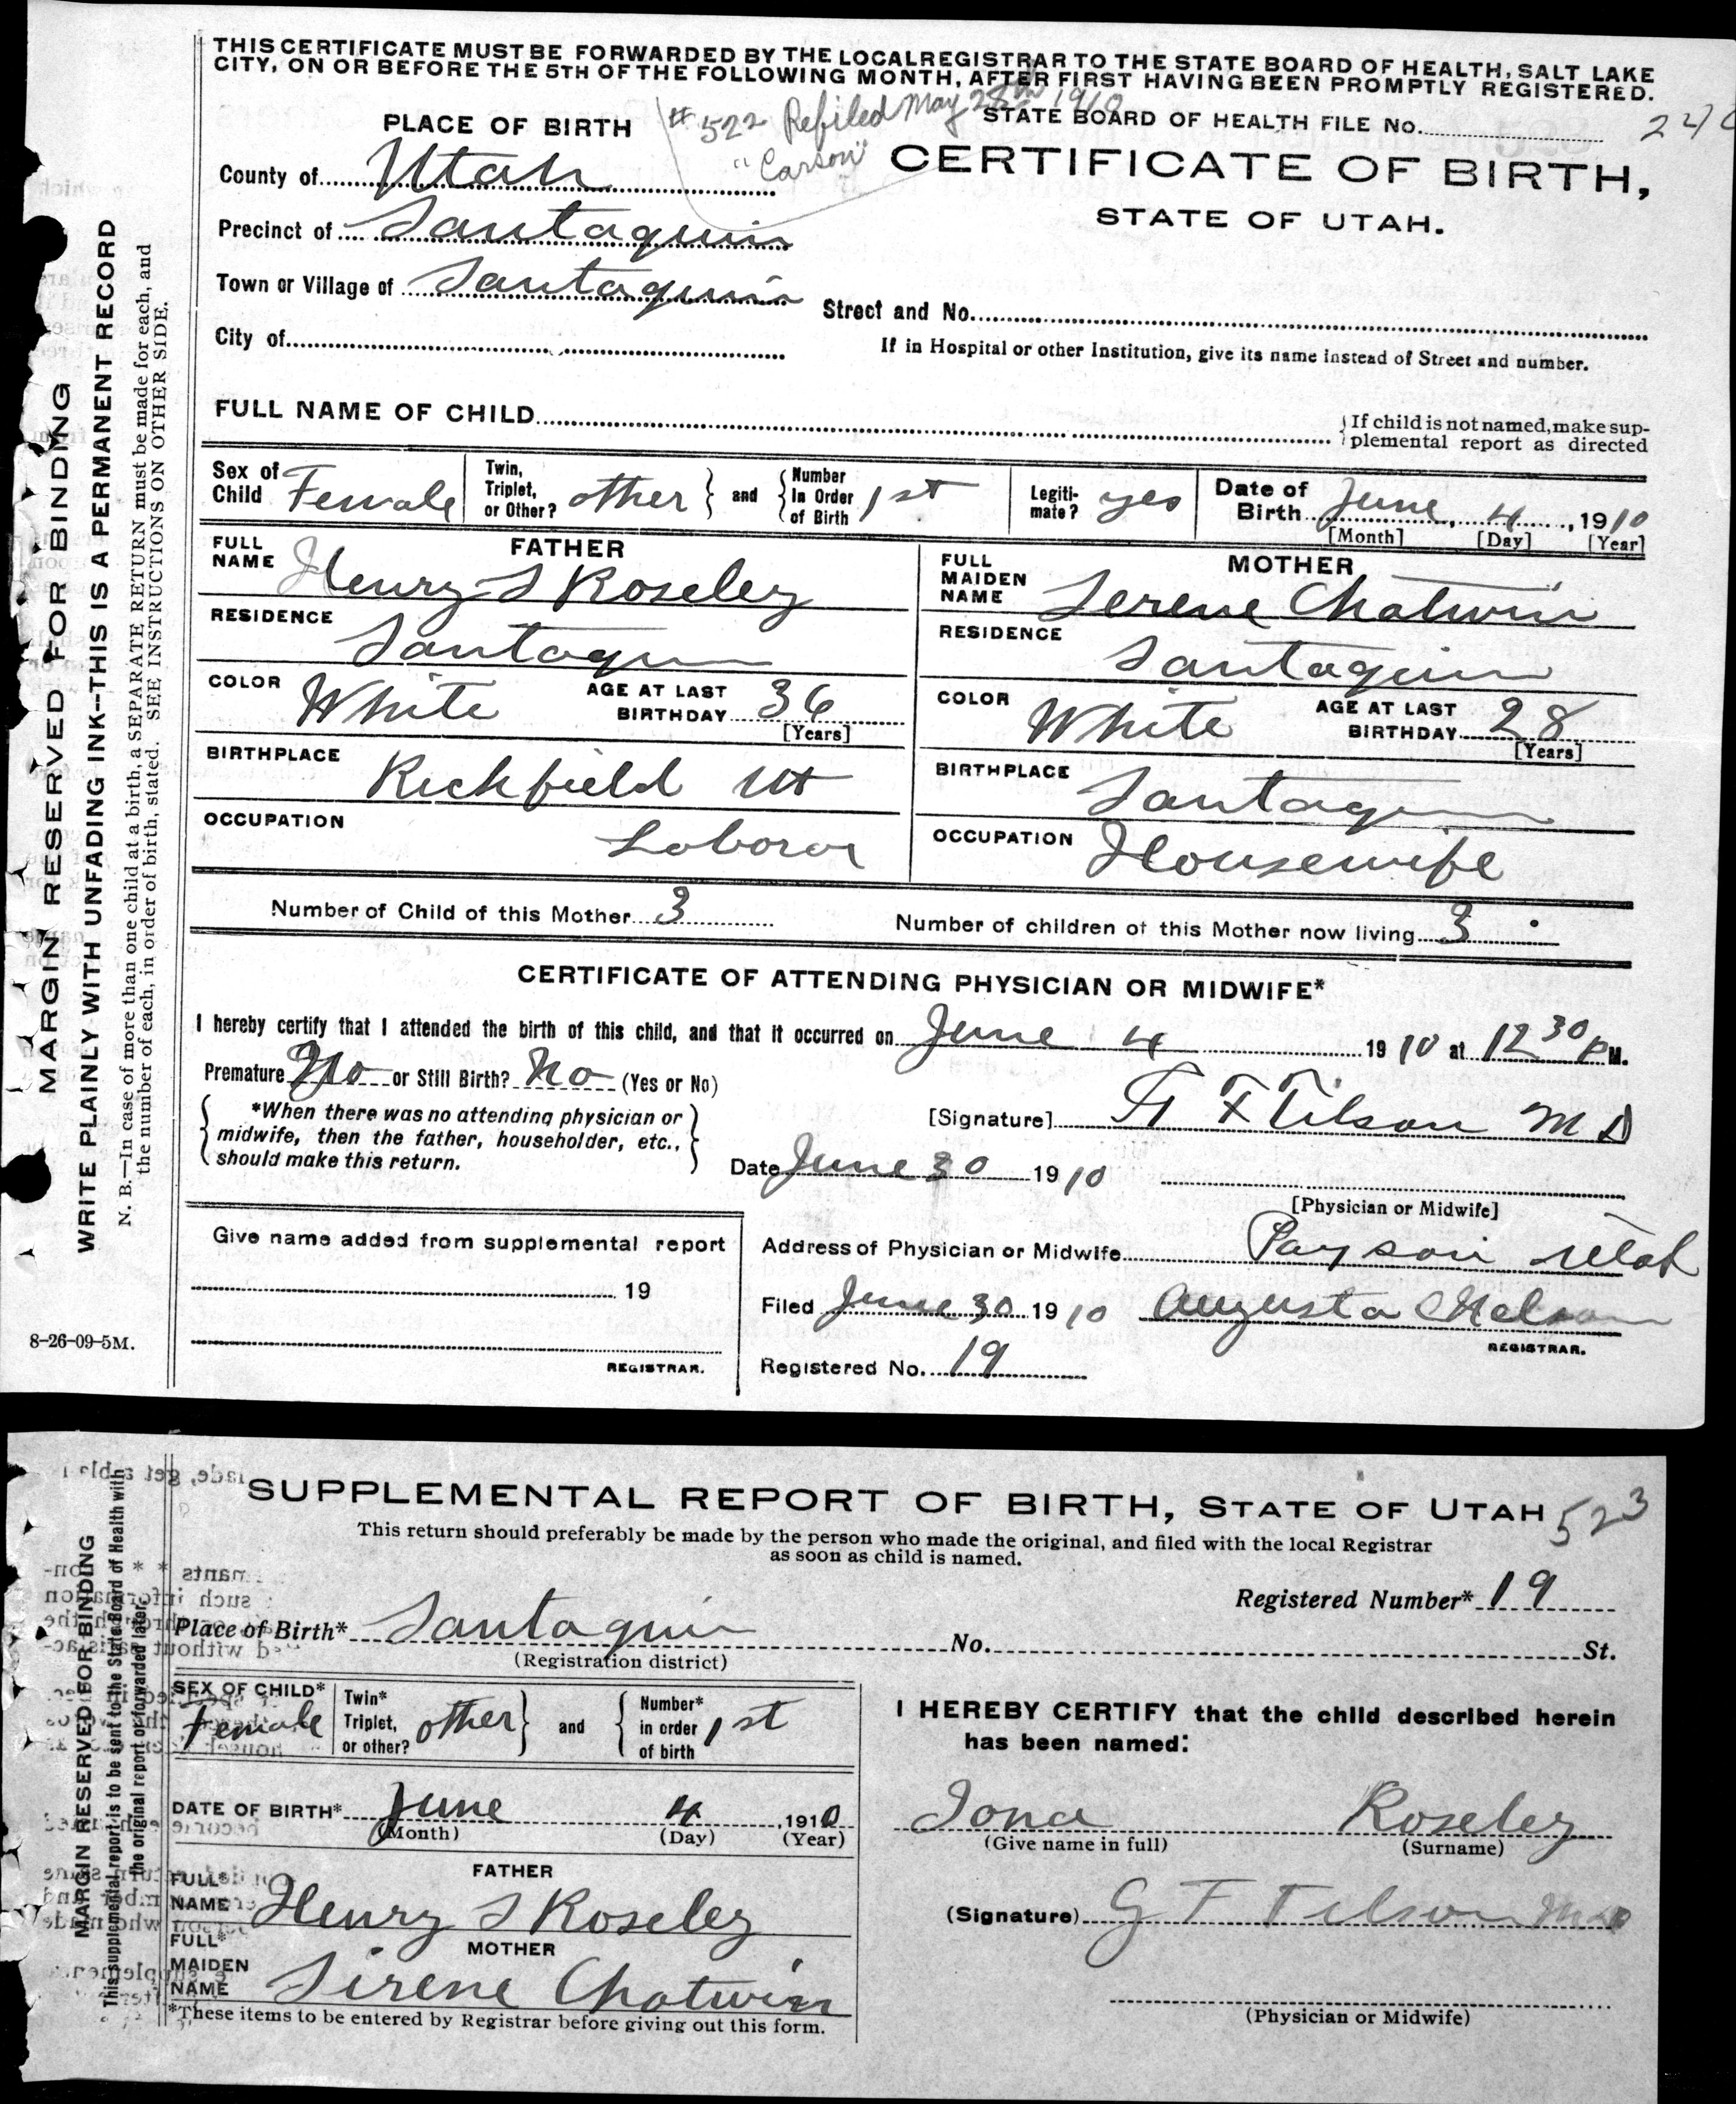 THIS CERTIFICATE MUST BE FORWARDED BY THE LOCAL REGISTRAR TO THE STATE BOARD OF HEALTH, SALT LAKE
CITY, ON OR BEFORE THE 5TH OF THE FOLLOWING MONTH, AFTER FIRST HAVING BEEN PROMPTLY REGISTERED.
# 522 Refiled May 28th 1910
"Carson"
STATE BOARD OF HEALTH FILE No.
PLACE OF BIRTH
CERTIFICATE OF BIRTH,
STATE OF UTAH.
County of Utah
Precinct of Santaquin
Town or Village of Santaquin
Street and No.
City of
If in Hospital or other Institution, give its name instead of Street and number.
FULL NAME OF CHILD
If child is not named, make sup-
plemental report as directed
Sex of Child Female
Twin, Triplet, or Other? other and Number In Order of Birth 1st
Legiti-mate? yes
Date of Birth June 4, 1910
[Month] [Day] [Year]
FATHER
FULL NAME Henry S Roseley
RESIDENCE Santaquin
COLOR White AGE AT LAST BIRTHDAY 36
[Years]
BIRTHPLACE Richfield Ut
OCCUPATION Laborer
MOTHER
FULL MAIDEN NAME Serene Chatwin
RESIDENCE Santaquin
COLOR White AGE AT LAST BIRTHDAY 28
[Years]
BIRTHPLACE Santaquin
OCCUPATION Housewife
Number of Child of this Mother 3
Number of children of this Mother now living 3
CERTIFICATE OF ATTENDING PHYSICIAN OR MIDWIFE*
I hereby certify that I attended the birth of this child, and that it occurred on June 4 1910 at 12 30 P M.
Premature No or Still Birth? No (Yes or No)
*When there was no attending physician or
midwife, then the father, householder, etc.,
should make this return.
[Signature] F Tilson M D
Date June 30 1910
[Physician or Midwife]
Give name added from supplemental report
19
REGISTRAR.
Address of Physician or Midwife Payson Utah
Filed June 30 1910 Augusta Nelson
REGISTRAR.
Registered No. 19
MARGIN RESERVED FOR BINDING
WRITE PLAINLY WITH UNFADING INK--THIS IS A PERMANENT RECORD
N. B.—In case of more than one child at a birth, a SEPARATE RETURN must be made for each, and
the number of each, in order of birth, stated. SEE INSTRUCTIONS ON OTHER SIDE.
8-26-09-5M.
SUPPLEMENTAL REPORT OF BIRTH, STATE OF UTAH 523
This return should preferably be made by the person who made the original, and filed with the local Registrar
as soon as child is named.
Registered Number* 19
Place of Birth* Santaquin No. St.
(Registration district)
SEX OF CHILD* Female
Twin* Triplet, or other? other and Number* in order of birth 1st
DATE OF BIRTH* June 4, 1910
(Month) (Day) (Year)
FATHER
FULL* NAME Henry S Roseley
MOTHER
FULL* MAIDEN NAME Sirene Chatwin
*These items to be entered by Registrar before giving out this form.
I HEREBY CERTIFY that the child described herein
has been named:
Iona Roseley
(Give name in full) (Surname)
(Signature) G F Tilson M D
(Physician or Midwife)
MARGIN RESERVED FOR BINDING
This supplemental report is to be sent to the State Board of Health with
the original report or forwarded later.